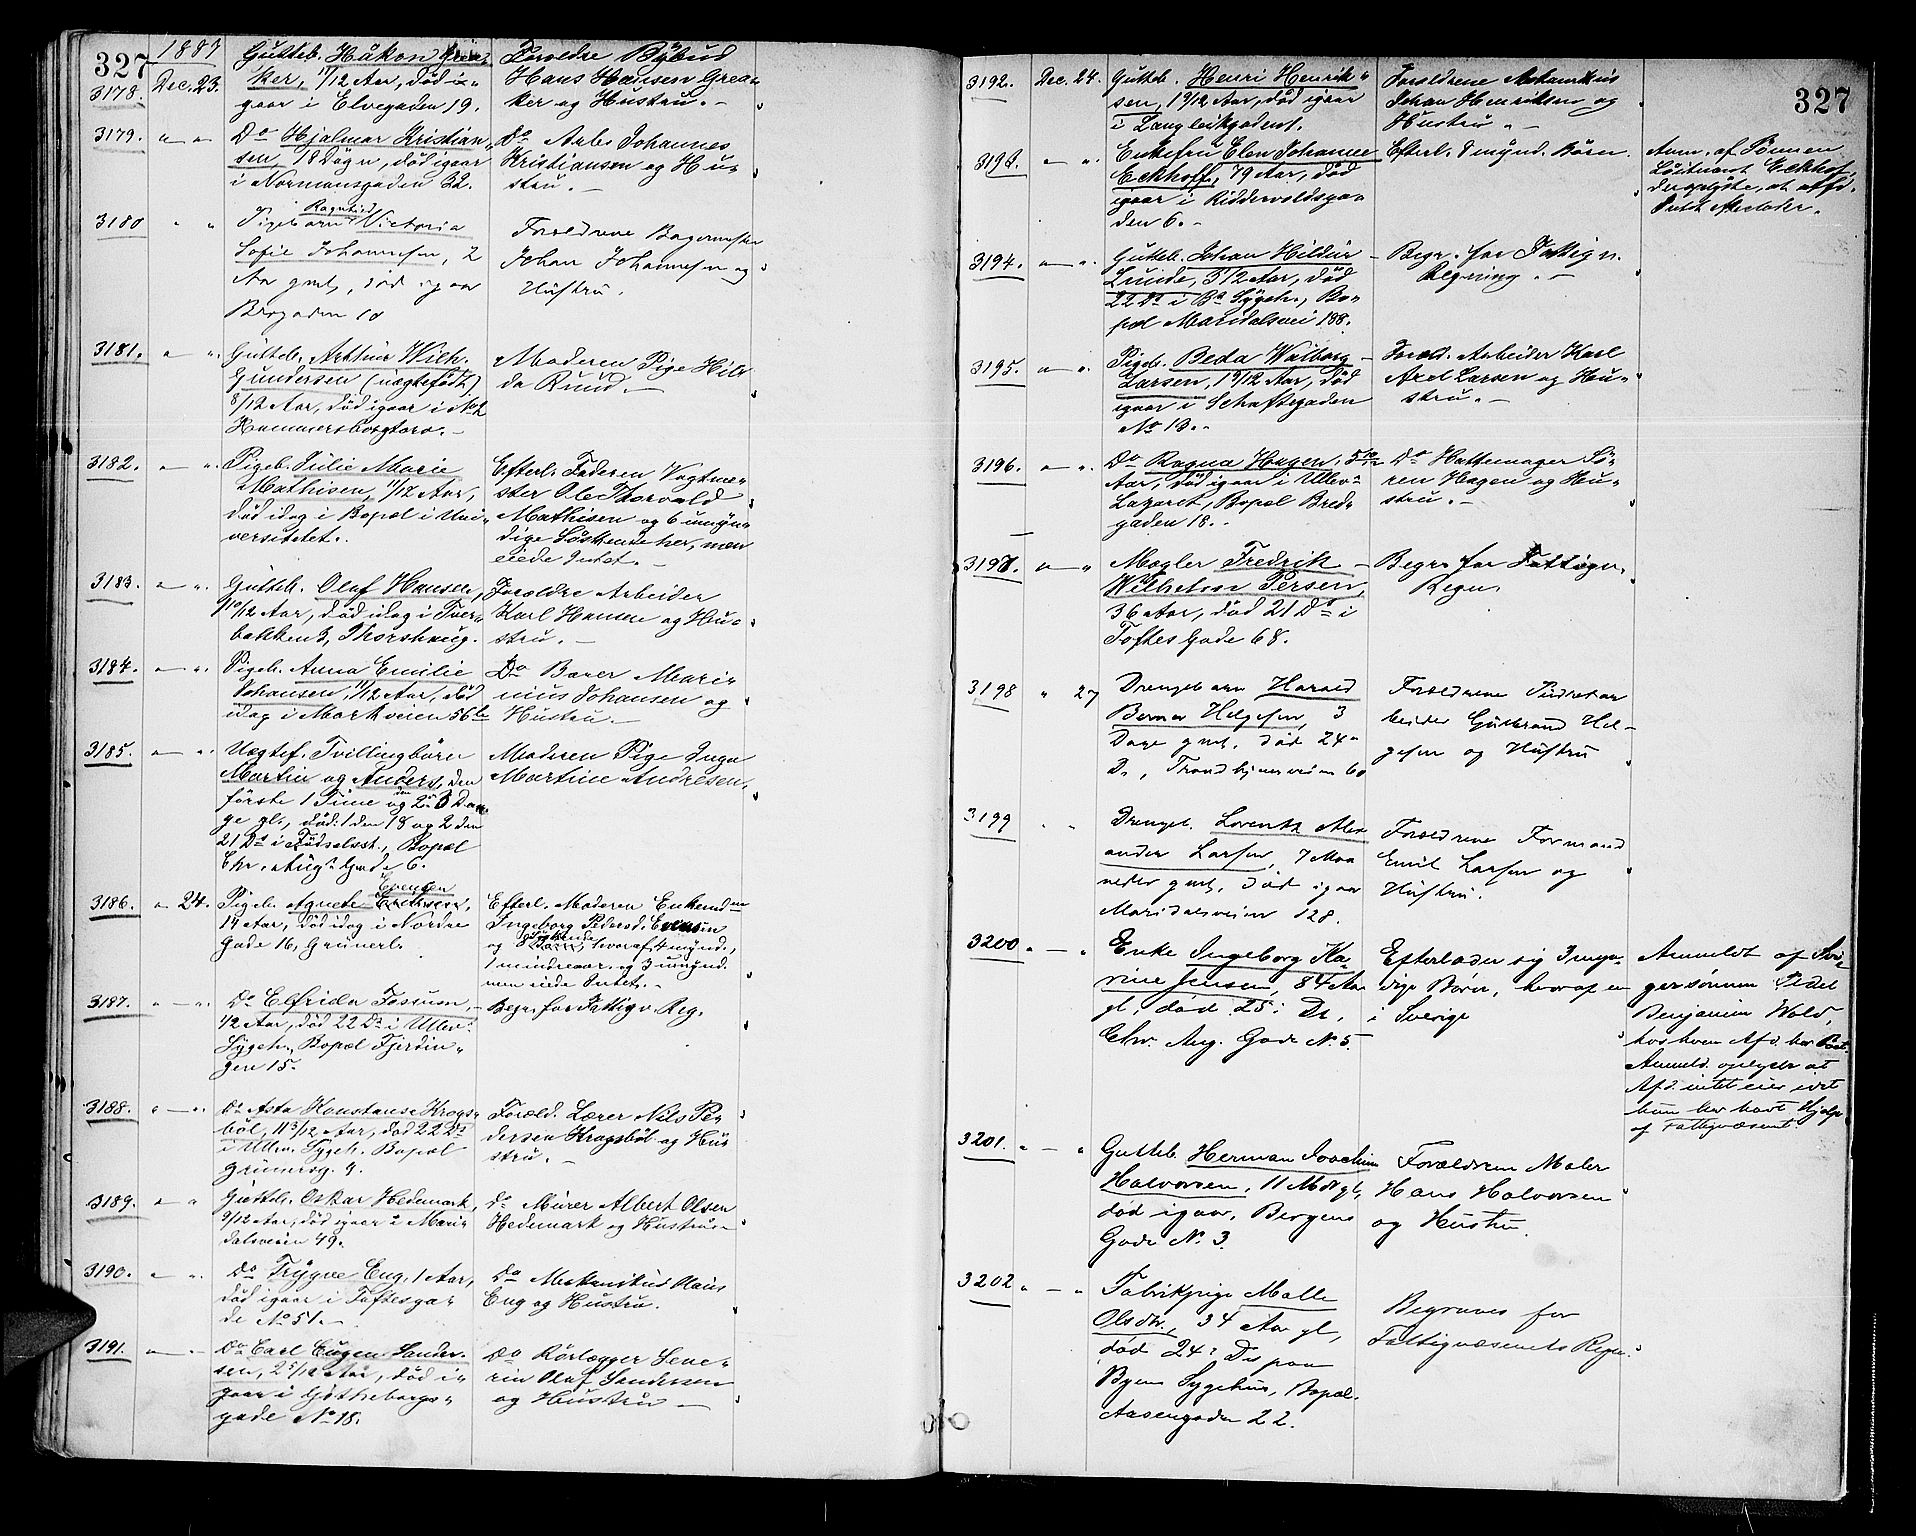 327
1887
3178. Dec. 23.
Gutteb. Håkon Grea-
ker, 11/12 Aar, død i-
gaar i Elvegaden 19.
Forældre Bybud
Hans Hansen Grea-
ker og Hustru. -
3179.
Do Hjalmar Kristian
sen, 18 Døgn, død igaar
i Normansgaden 32.
Do Arb. Johannes
Kristiansen og Hu-
stru. -
3180
Ragnhild
Pigebarn Victoria
Sofie Johannesen, 2
Aar gml., død igaar
Brogaden 10
Forældrene Bagermester
Johan Johannesen og
Hustru.
3181.
Gutteb. Arthur Wilh.
Gundersen (uægtefødt)
8/12 Aar, død igaar i No 2
Hammersborgtorv. -
Moderen Pige Hil-
da Ruud. -
3182.
Pigeb. Julie Marie
Mathisen, 11/12 Aar,
død idag i Bopæl i Uni-
versitetet.
Efterl. Faderen Vagtme-
ster Ole Thorvald
Mathisen og 6 umyn-
dige Søskende her, men
eiede Intet. -
3183.
Gutteb. Olaf Hansen,
10/12 Aar, død idag i Tver-
bakken 3, Thorshaug.
Forældre Arbeider
Karl Hansen og Hu-
stru. -
3184.
Pigeb. Anna Emilie
Johansen, 11/12 Aar, død
idag i Markveien 56b
Do Bærer Mari-
nius Johansen og
Hustru. -
3185.
Uægtef. Tvillingbørn
Martin og Anders, den
første 1 Time og den 2den 3 Da-
ge gl., død: 1 den 18 og 2 den
21 Ds i Fødselsst., Bopæl
Chr. Aug.s Gade 6.
Moderen Pige Inga
Martine Andresen.
3186. 24.
Evensen
Pigeb. Agnete
14 Aar, død idag i Nordre
Gade 16, Grünerl.
Efterl. Moderen Enkemdm
Ingeborg Pedersd. Evensen
og 8 Søskende, hvoraf 4 mynd.,
1 mindreaar. og 3 umynd.
men eiede Intet. -
3187.
Do Elfrida Fossum,
1/2 Aar, død 22 Ds i Ullev.
Sygeh., Bopæl Fjerdin-
gen 15.
Begr. for Fattigv. Reg.
3188.
Do Asta Konstanse Krogs-
bøl, 11 3/12 Aar, død 22 Ds
i Ullev. Sygeh. Bopæl
Grünersg. 9.
Foræld. Lærer Nils Pe-
dersen Krogsbøl og Hus
stru. -
3189.
Gutteb. Oskar Hedemark,
9/12 Aar, død igaar i Mari-
dalsveien 49.
Do Murer Albert Olsen
Hedemark og Hustru. -
3190.
Do Trygve Eng, 1 Aar,
død igaar i Toftesga-
de No 51. -
Do Mekanikus Hans
Eng og Hustru.
3191.
Do Carl Eugen Sander-
sen, 2 5/12 Aar, død i-
gaar i Gøtheborgs-
gade No 18.
Do Rørlægger Seve-
rin Olaf Sandersen
og Hustru -
327
3192. Dec. 24.
Gutteb. Henri Henrik-
sen, 1 9/12 Aar, død igaar
i Langleikgaden 1.
Forældrene Mekanikus
Johan Henriksen og
Hustru. -
3193.
Enkefru Elen Johanne
Eckhoff, 79 Aar, død
igaar i Riddervoldsga-
den 6. -
Efterl. 8 mynd. Børn.
Anm. af Sønnen
Løitnant Eckhof,
der oplyste, at afd.
Intet efterlader.
3194.
Gutteb. Johan Hildur
Lunde, 3 1/2 Aar, død
22 Ds i Bs Sygeh., Bo-
pæl Maridalsvei 188.
Begr. for Fattigv.
Regning. -
3195.
Pigeb. Beda Walborg
Larsen, 1 9/12 Aar, død
igaar i Schaftsgaden
No 13.
Foræld. Arbeider Karl
Axel Larsen og Hu-
stru. -
3196.
Do Ragna Hagen, 5 10/12
Aar, død igaar i Ullev.
Lazaret, Bopæl Bred-
gaden 18.
Do Hattemager Sø-
ren Hagen og Hu-
stru. -
3197.
Mægler Fredrik
Wilhelm Persen,
36 Aar, død 21 Ds i
Toftes Gade 68.
Begr. for Fattigv.
Regn.
3198 27
Drengebarn Harald
Berner Helgesen, 3
Dage gml. død 24
Ds, Trondhjemsveien 60
Forældrene Indretar
beider Gulbrand Hel-
gesen og Hustru
3199
Drengeb. Lorentz Alex
ander Larsen, 7 Maa
neder gml., død igaar
Maridalsveien 128.
Forældrene Formand
Emil Larsen og
Hustru.
3200
Enke Ingeborg Ka-
rine Jensen, 84 Aar
gl., død 25. Ds,
Chr. Aug. Gade No 5.
Efterlader sig 3 myn-
dige Børn, hvoraf en
i Sverige
Anmeldt af Svi-
gersønnen Pedel
Benjamin Wold,
hos hvem Afd. har boet.
Anmeld. oplyste at
Afd. intet eier idet
hun har havt Hjælp
af Fattigvæsenet.
3201.
Gutteb. Herman Joachim
Halvorsen, 11 Mdr gl,
død igaar, Bergens
Gade No 3.
Forældrene Maler
Hans Halvorsen
og Hustru.
3202
Fabrikpige Malle
Olsdtr., 34 Aar gl,
død 24. Ds paa
Byens Sygehus, Bopæl.
Aasengaden 22.
Begraves for
Fattigvæsenets Regn.